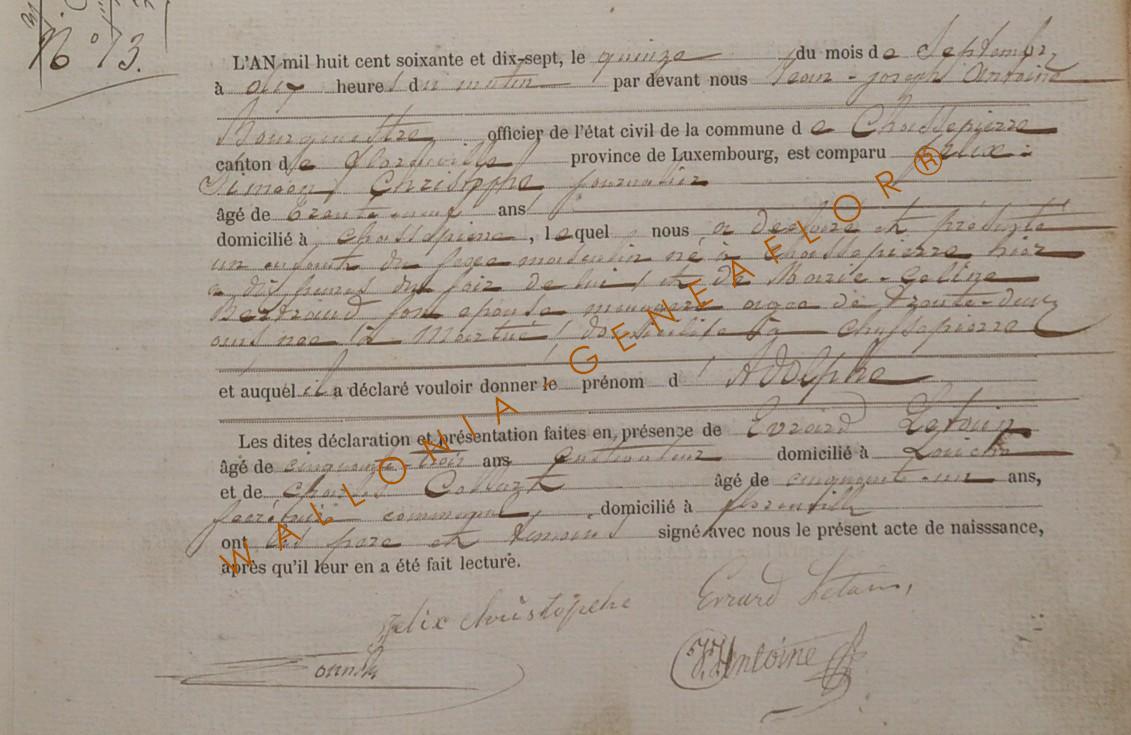 N° 13.
L'AN mil huit cent soixante et dix-sept, le quinze du mois de Septembre
à dix heures du matin par devant nous Jean-joseph Antoine
Bourgmestre officier de l'état civil de la commune de Chassepierre
canton de florenville province de Luxembourg, est comparu felix
Simeon Christophe journalier
âgé de trente neuf ans
domicilié à chassepierre, lequel nous a déclaré et présenté
un enfant du sexe masculin né à chassepierre hier
a dix heures du soir de lui et de Marie-Celine
Bertrand son epouse menagere agee de trente-deux
ans nee à Martué domiciliée à chassepierre
et auquel il a déclaré vouloir donner le prénom d'Adolphe
Les dites déclaration et présentation faites en présence de Evrard
âgé de cinquante-trois ans cultivateur domicilié à
et de charles âgé de cinquante-un ans,
secrétaire communal, domicilié à florenville
ont les pere et temoins signé avec nous le présent acte de naisssance,
après qu'il leur en a été fait lecture.
felix christophe Evrard
J.J. Antoine
WALLONIA GENEAFLOR®